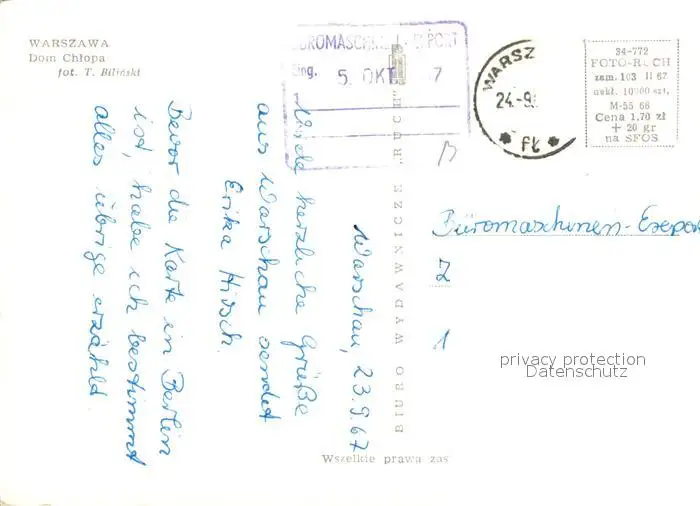 WARSZAWA
Dom Chłopa
fot. T. Biliński
BÜROMASCHINEN-EXPORT
Eing. 5. OKT. 67
WARSZ
24.-9.
34-772
FOTO-RUCH
zam. 103 II 67
nakł. 10000 szt.
M-55 66
Cena 1.70 zł
+ 20 gr
na SFOS
Warschau, 23.9.67
Viele herzliche Grüße
aus Warschau sendet
Erika Hirsch.
Bevor die Karte in Berlin
ist, habe ich bestimmt
alles übrige erzählt
BIURO WYDAWNICZE „RUCH"
Büromaschinen-Export
1
privacy protection
Datenschutz
Wszelkie prawa zas